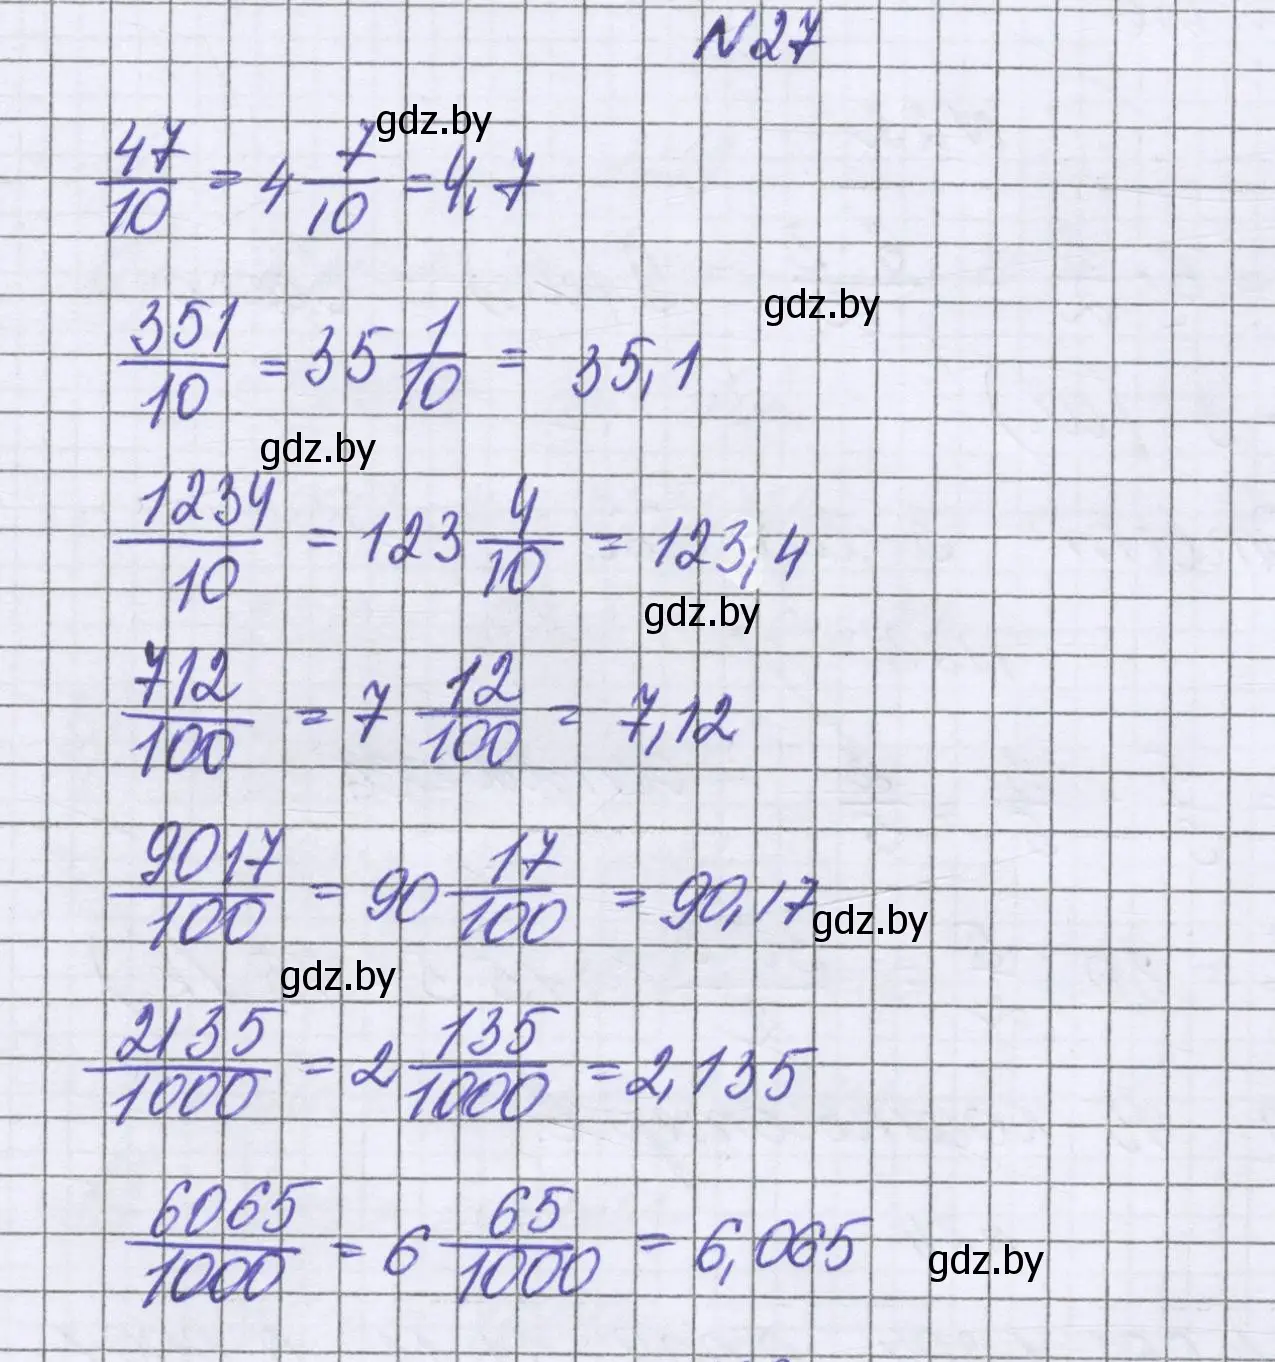 N27
gdz.by
47/10 = 4 7/10 = 4,7
gdz.by
351/10 = 35 1/10 = 35,1
gdz.by
1234/10 = 123 4/10 = 123,4
gdz.by
712/100 = 7 12/100 = 7,12
9017/100 = 90 17/100 = 90,17
gdz.by
gdz.by
2135/1000 = 2 135/1000 = 2,135
6065/1000 = 6 65/1000 = 6,065
gdz.by